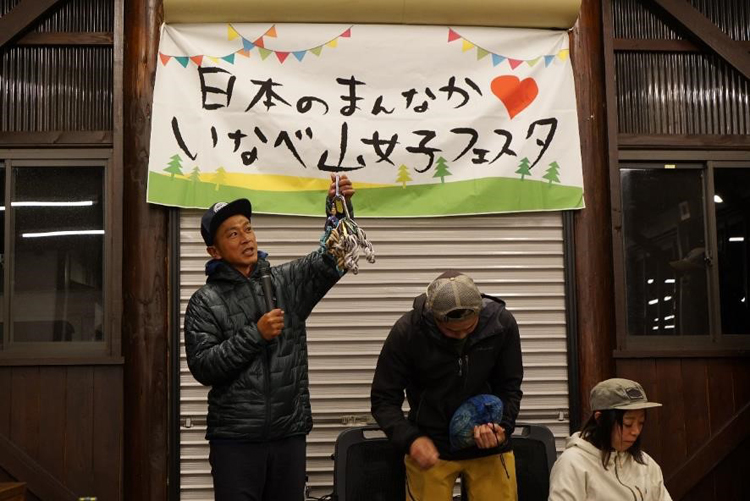 日本のまんなか♥
いなべ山女子フェスタ